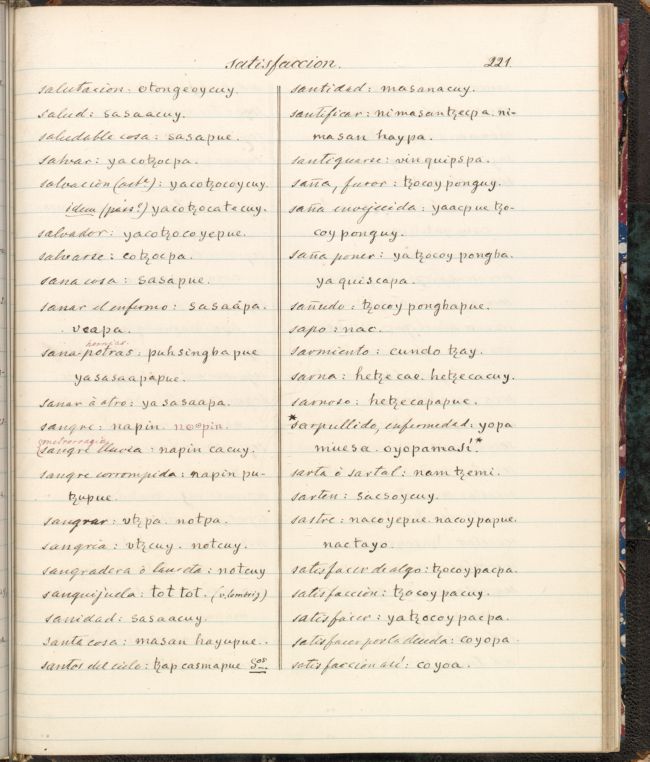 satisfaccion.
221
salutacion: otongeoycuy.
salud: sasaacuy.
saludable cosa: sasapue.
salvar: yacotꜩocpa.
salvacion (act.ª): yacotꜩocoycuy.
idem (pàss.ª) yacotꜩocatecuy.
salvador: yacotꜩocoyepue.
salvarse: cotꜩocpa.
sana cosa: sasapue.
sanar el enfermo: sasaápa.
vcapa.
hernias.
sana-potras: puhsingbapue
yasasaapapue.
sanar à otro: yasasaapa.
sangre: napin. nöopin.
(metrorragia
sangre lluvia: napin cacuy.
sangre corrompida: napin pu-
tꜩupue.
sangrar: vtꜩpa. notpa.
sangria: vtꜩcuy. notcuy.
sangradera ò lanceta: notcuy
sanguijuela: tot tot. (v. lombriz)
sanidad: sasaacuy.
santa cosa: masan hayupue..
santos del cielo: tꜩap casmapue Sos.
santidad: masanacuy.
santificar: nimasantꜩecpa. ni-
masan haypa.
santiguarse: vinquipspa.
saña, furor: tꜩocoyponguy.
saña envejecida: yaacpue tꜩo-
coy ponguy.
saña poner: yatꜩocoy pongba.
yaquiscapa.
sañudo: tꜩocoy pongbapue.
sapo: nac.
sarmiento: cundo tꜩay.
sarna: hetꜩe cae. hetꜩecacuy.
sarnoso: hetꜩecapapue.
*sarpullido, enfermedad: yopa
muesa. oyopamasi'.*
sarta ò sartal: nam tꜩemi.
sarten: sacsoycuy.
sastre: nacoyepue. nacoypapue.
nactayo.
satisfacer de algo: tꜩocoypacpa.
satisfacciòn: tꜩocoy pacuy.
satisfacer: yatꜩocoy pacpa.
satisfacer por la deuda: coyopa.
satisfaccion asi: coyoa.